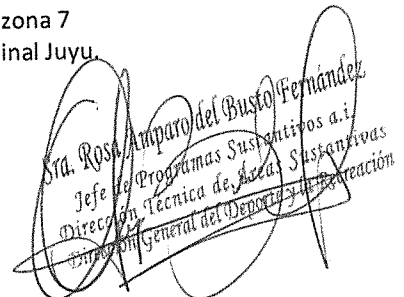 zona 7
inal Juyu.
Sra. Rosa Amparo del Busto Fernández
Jefe de Programas Sustantivos a.i.
Dirección Técnica de Áreas Sustantivas
Dirección General del Deporte y la Recreación